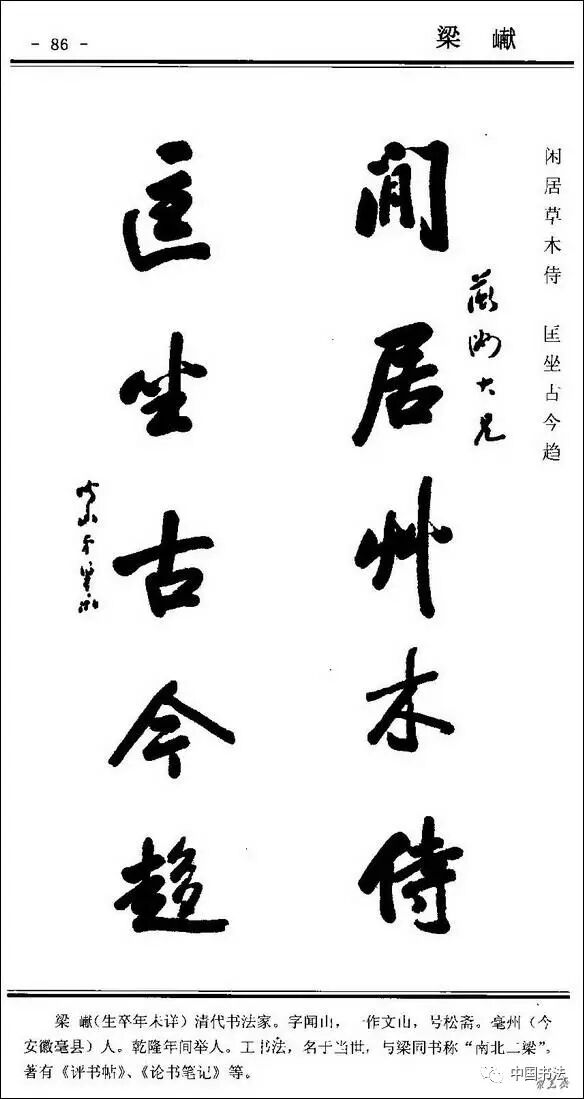 - 86 -
梁 𪩘
闲居草木侍 匡坐古今趋
閒居艸木侍
大兄
匡坐古今趍
梁 𪩘(生卒年未详)清代书法家。字闻山，一作文山，号松斋。毫州(今
安徽毫县)人。乾隆年间举人。工书法，名于当世，与梁同书称“南北二梁”。
著有《评书帖》、《论书笔记》等。
中国书法